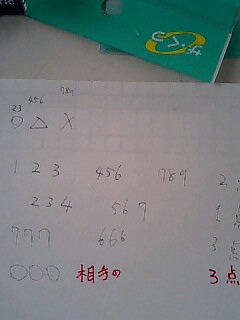 さくら
123 456 789
○ △ ×
1 2 3 456 789 2
234 567 1点
777 666 3点
○○○ 相手の 3点